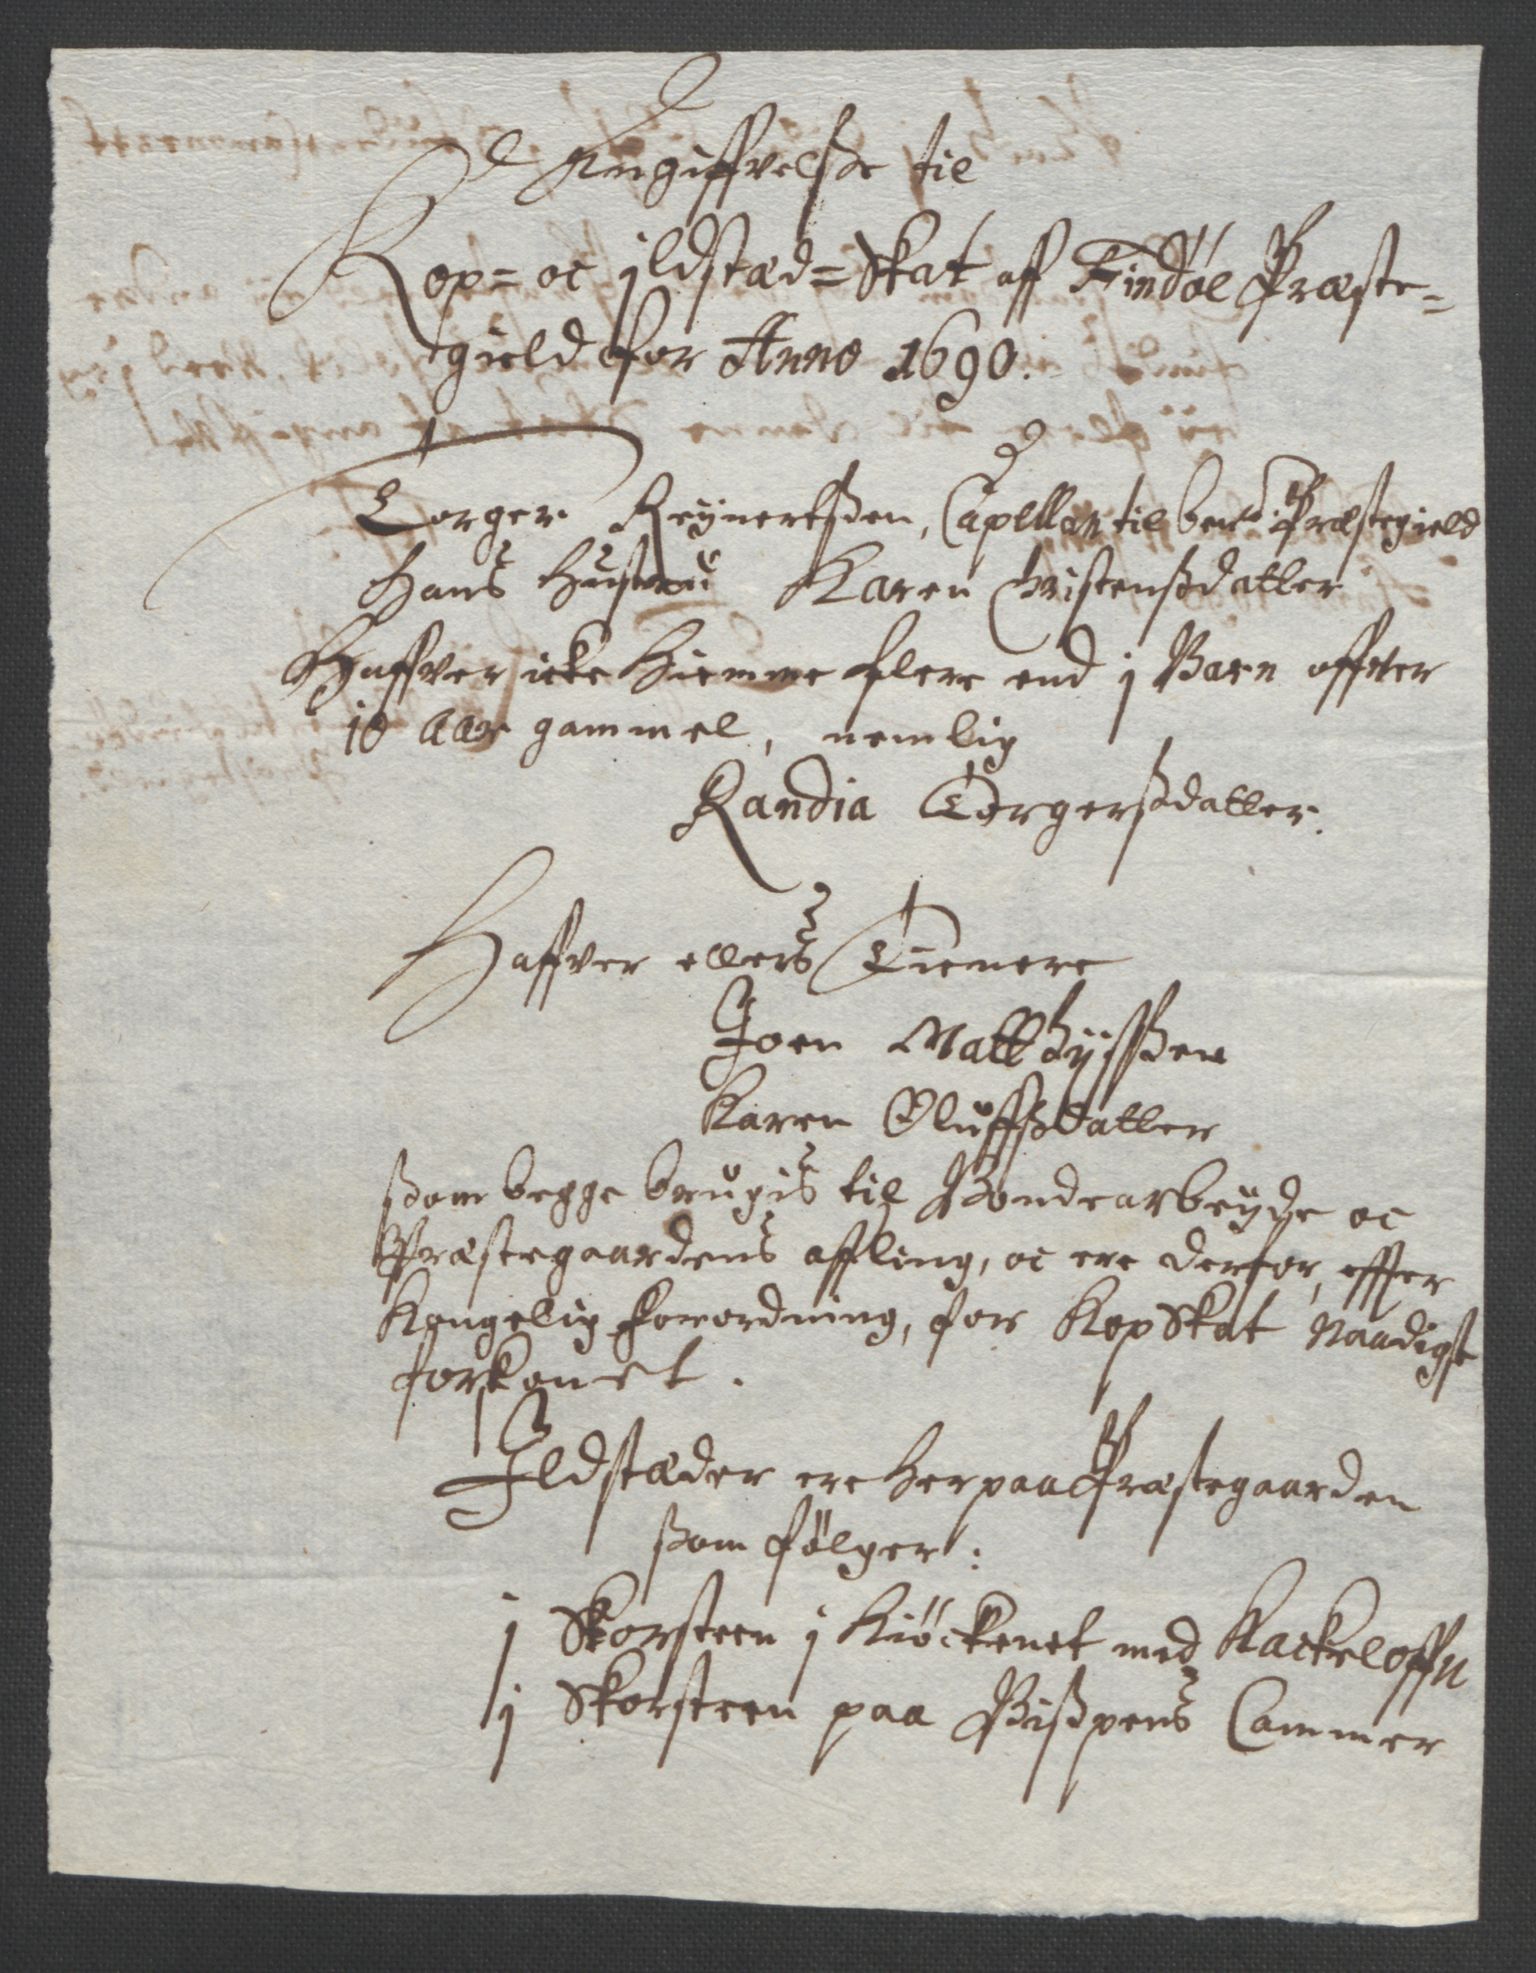 Angiffvelsse til
Kop= oc jldstæd=Skat aff Findøe Præste=
gield for Anno 1690.
Torger Reÿnertssen, Capellan til bemt. Præstegield
Hans Hustru Karen Christenssdatter
Haffver icke hiemme flere end j Barn offver
10 aar gammel, nemlig
Randia Torgerssdatter.
Haffver ellers Tienere
Joen Matthÿssen
Karen Oluffssdatter
ssom begge brugis til Bondearbeÿde oc
Præstegaardens affling, oc ere derfor, effter
Kongelig Forordning, for KopSkat Naadigst
forskonet.
Ildstæder ere her paa Præstegaarden
ssom følger:
j Skorsteen j Kiøckenet med Kackeloffn
j Skorsteen paa Bisspens Cammer